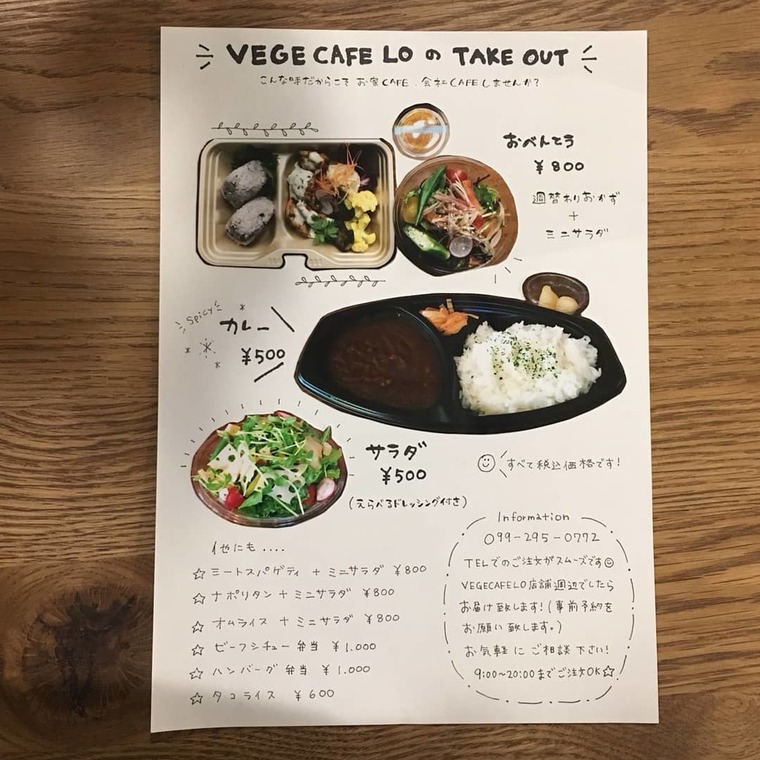 VEGE CAFE LO の TAKE OUT
こんな時だからこそ お家CAFE、会社CAFEしませんか?
おべんとう
¥800
週替わりおかず
+
ミニサラダ
Spicy
カレー
¥500
サラダ
¥500
(えらべるドレッシング付き)
すべて税込価格です!
他にも....
☆ミートスパゲティ + ミニサラダ ¥800
☆ナポリタン + ミニサラダ ¥800
☆オムライス + ミニサラダ ¥800
☆ビーフシチュー弁当 ¥1.000
☆ハンバーグ弁当 ¥1.000
☆タコライス ¥600
Information
099-295-0772
TELでのご注文がスムーズです☺
VEGECAFELO店舗週辺でしたら
お届け致します!(事前予約を
お願い致します。)
お気軽にご相談下さい!
9:00~20:00までご注文OK☆